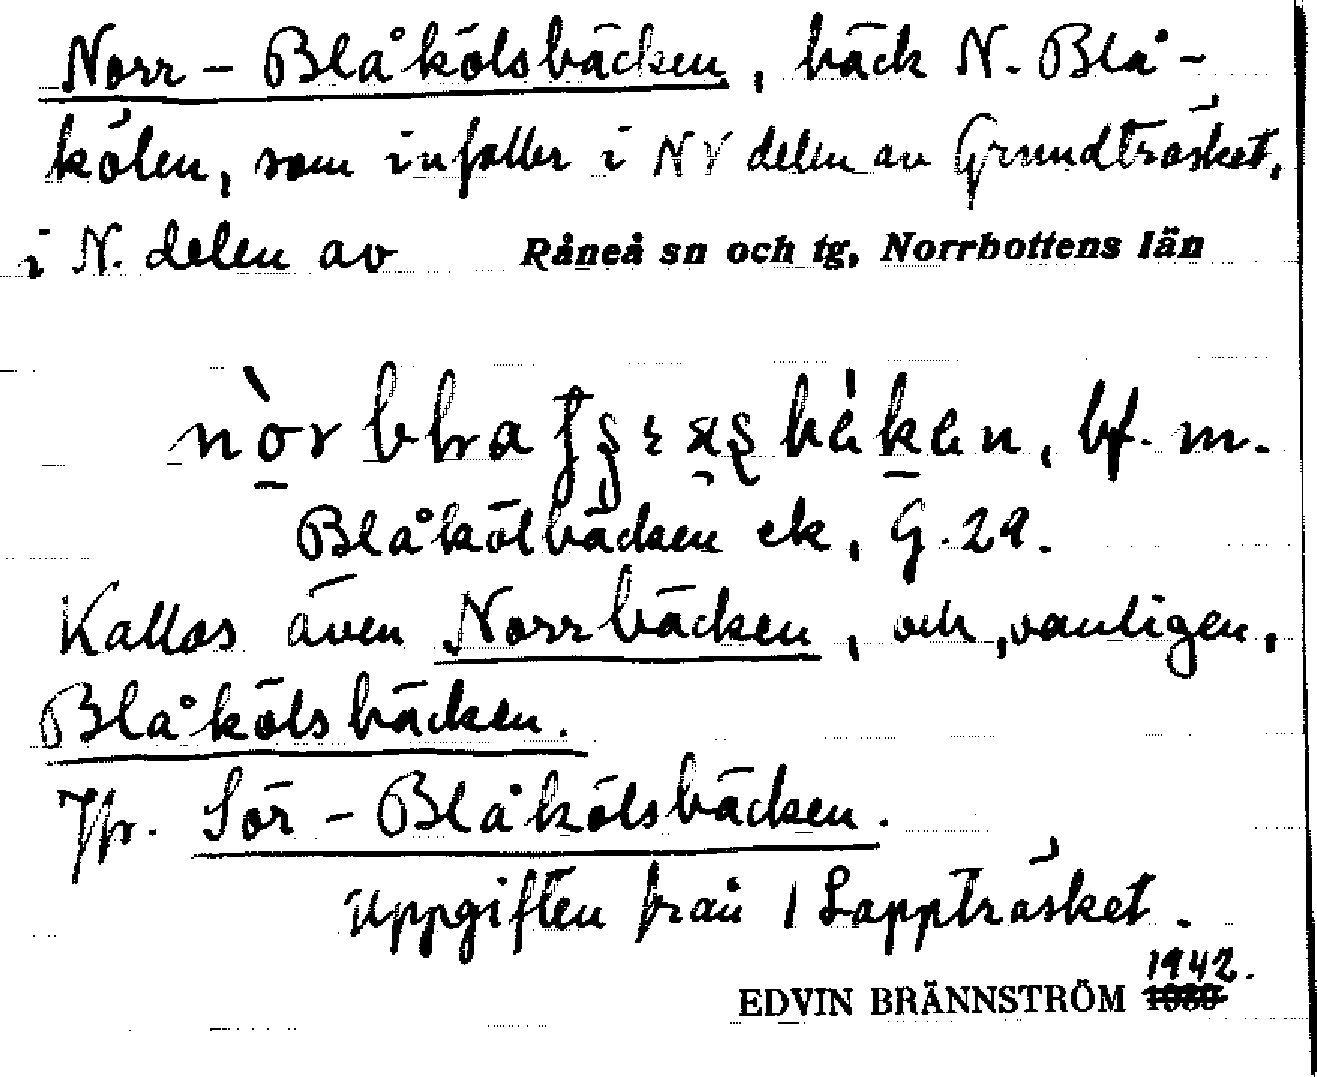 Norr-Blåkölsbäcken, bäck N. Blå-
kölen, som infaller i NV delen av Grundträsket,
i N. delen av Råneå sn och tg, Norrbottens län
bf. m.
Blåkölbäcken ek, G. 29.
Kallas även Norrbäcken, och, vanligen,
Blåkölsbäcken.
Jfr. Sör-Blåkölsbäcken.
Uppgiften från 1 Lappträsket.
1942.
EDVIN BRÄNNSTRÖM 1930